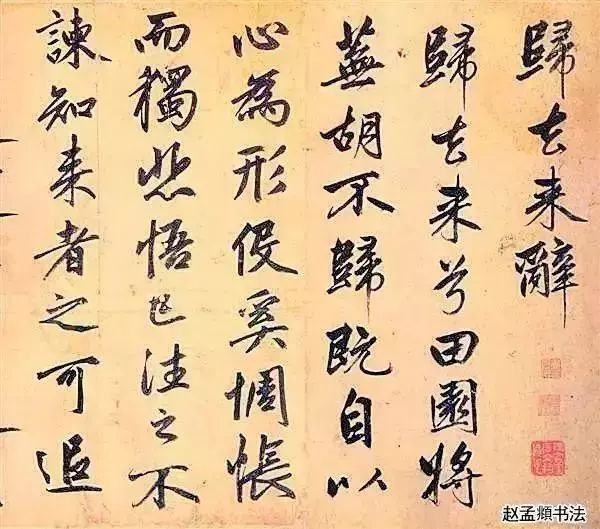 歸去来辭
歸去来兮田園将
蕪胡不歸既自以
心為形役奚惆悵
而獨悲悟已往之不
諫知来者之可追
赵孟頫书法